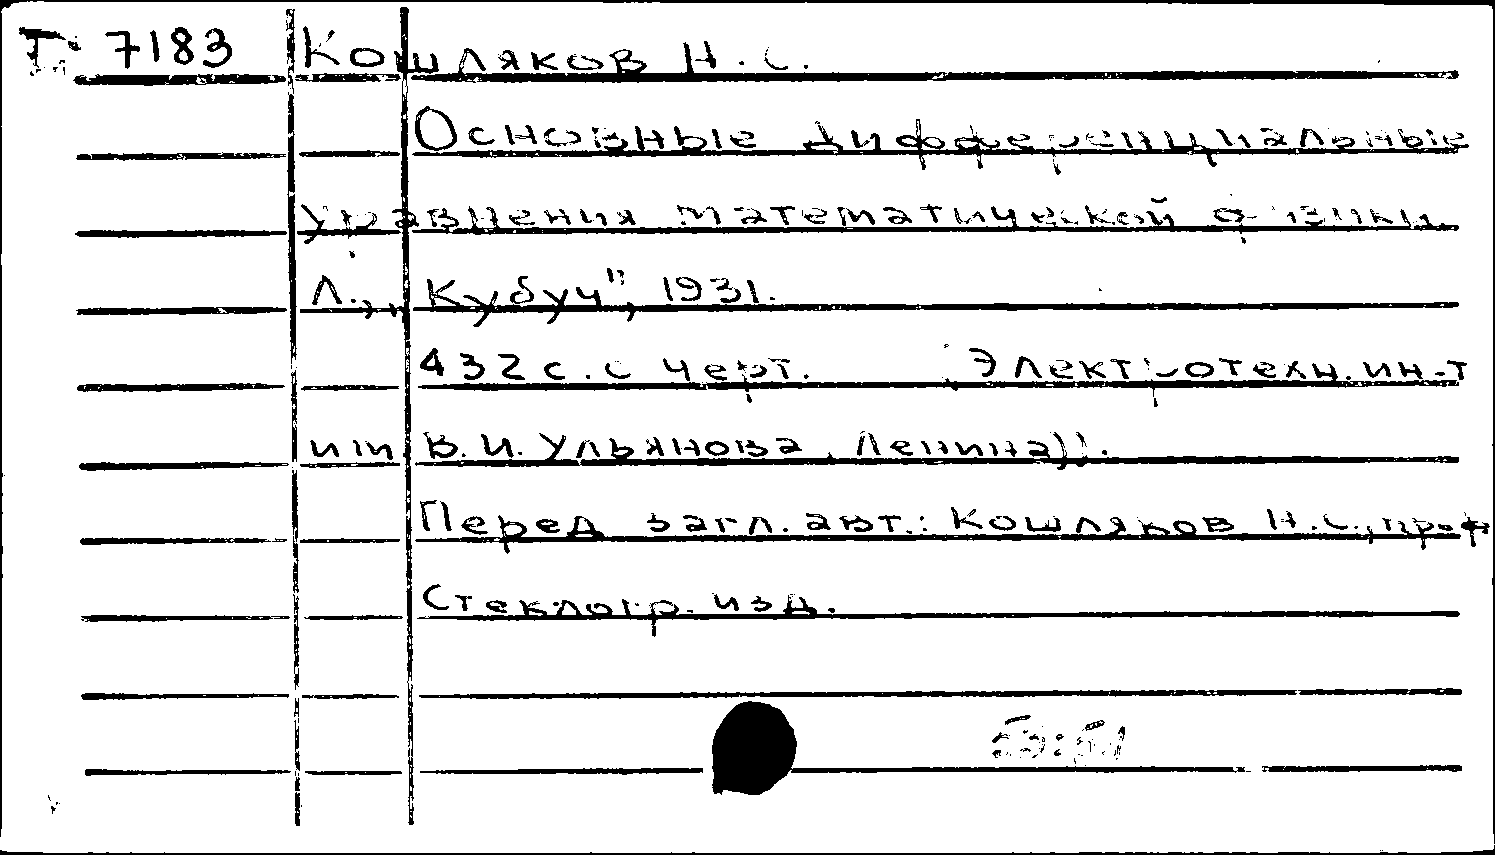 Г 7183 Кошляков Н.С.
Основные дифференциальные
уравнения математической физики.
Л., „Кубуч", 1931.
432 с. с черт. Электротехн. ин-т
им. В.И. Ульянова (Ленина)).
Перед загл. авт.: Кошляков Н.С., проф
Стеклогр. изд.
53:51